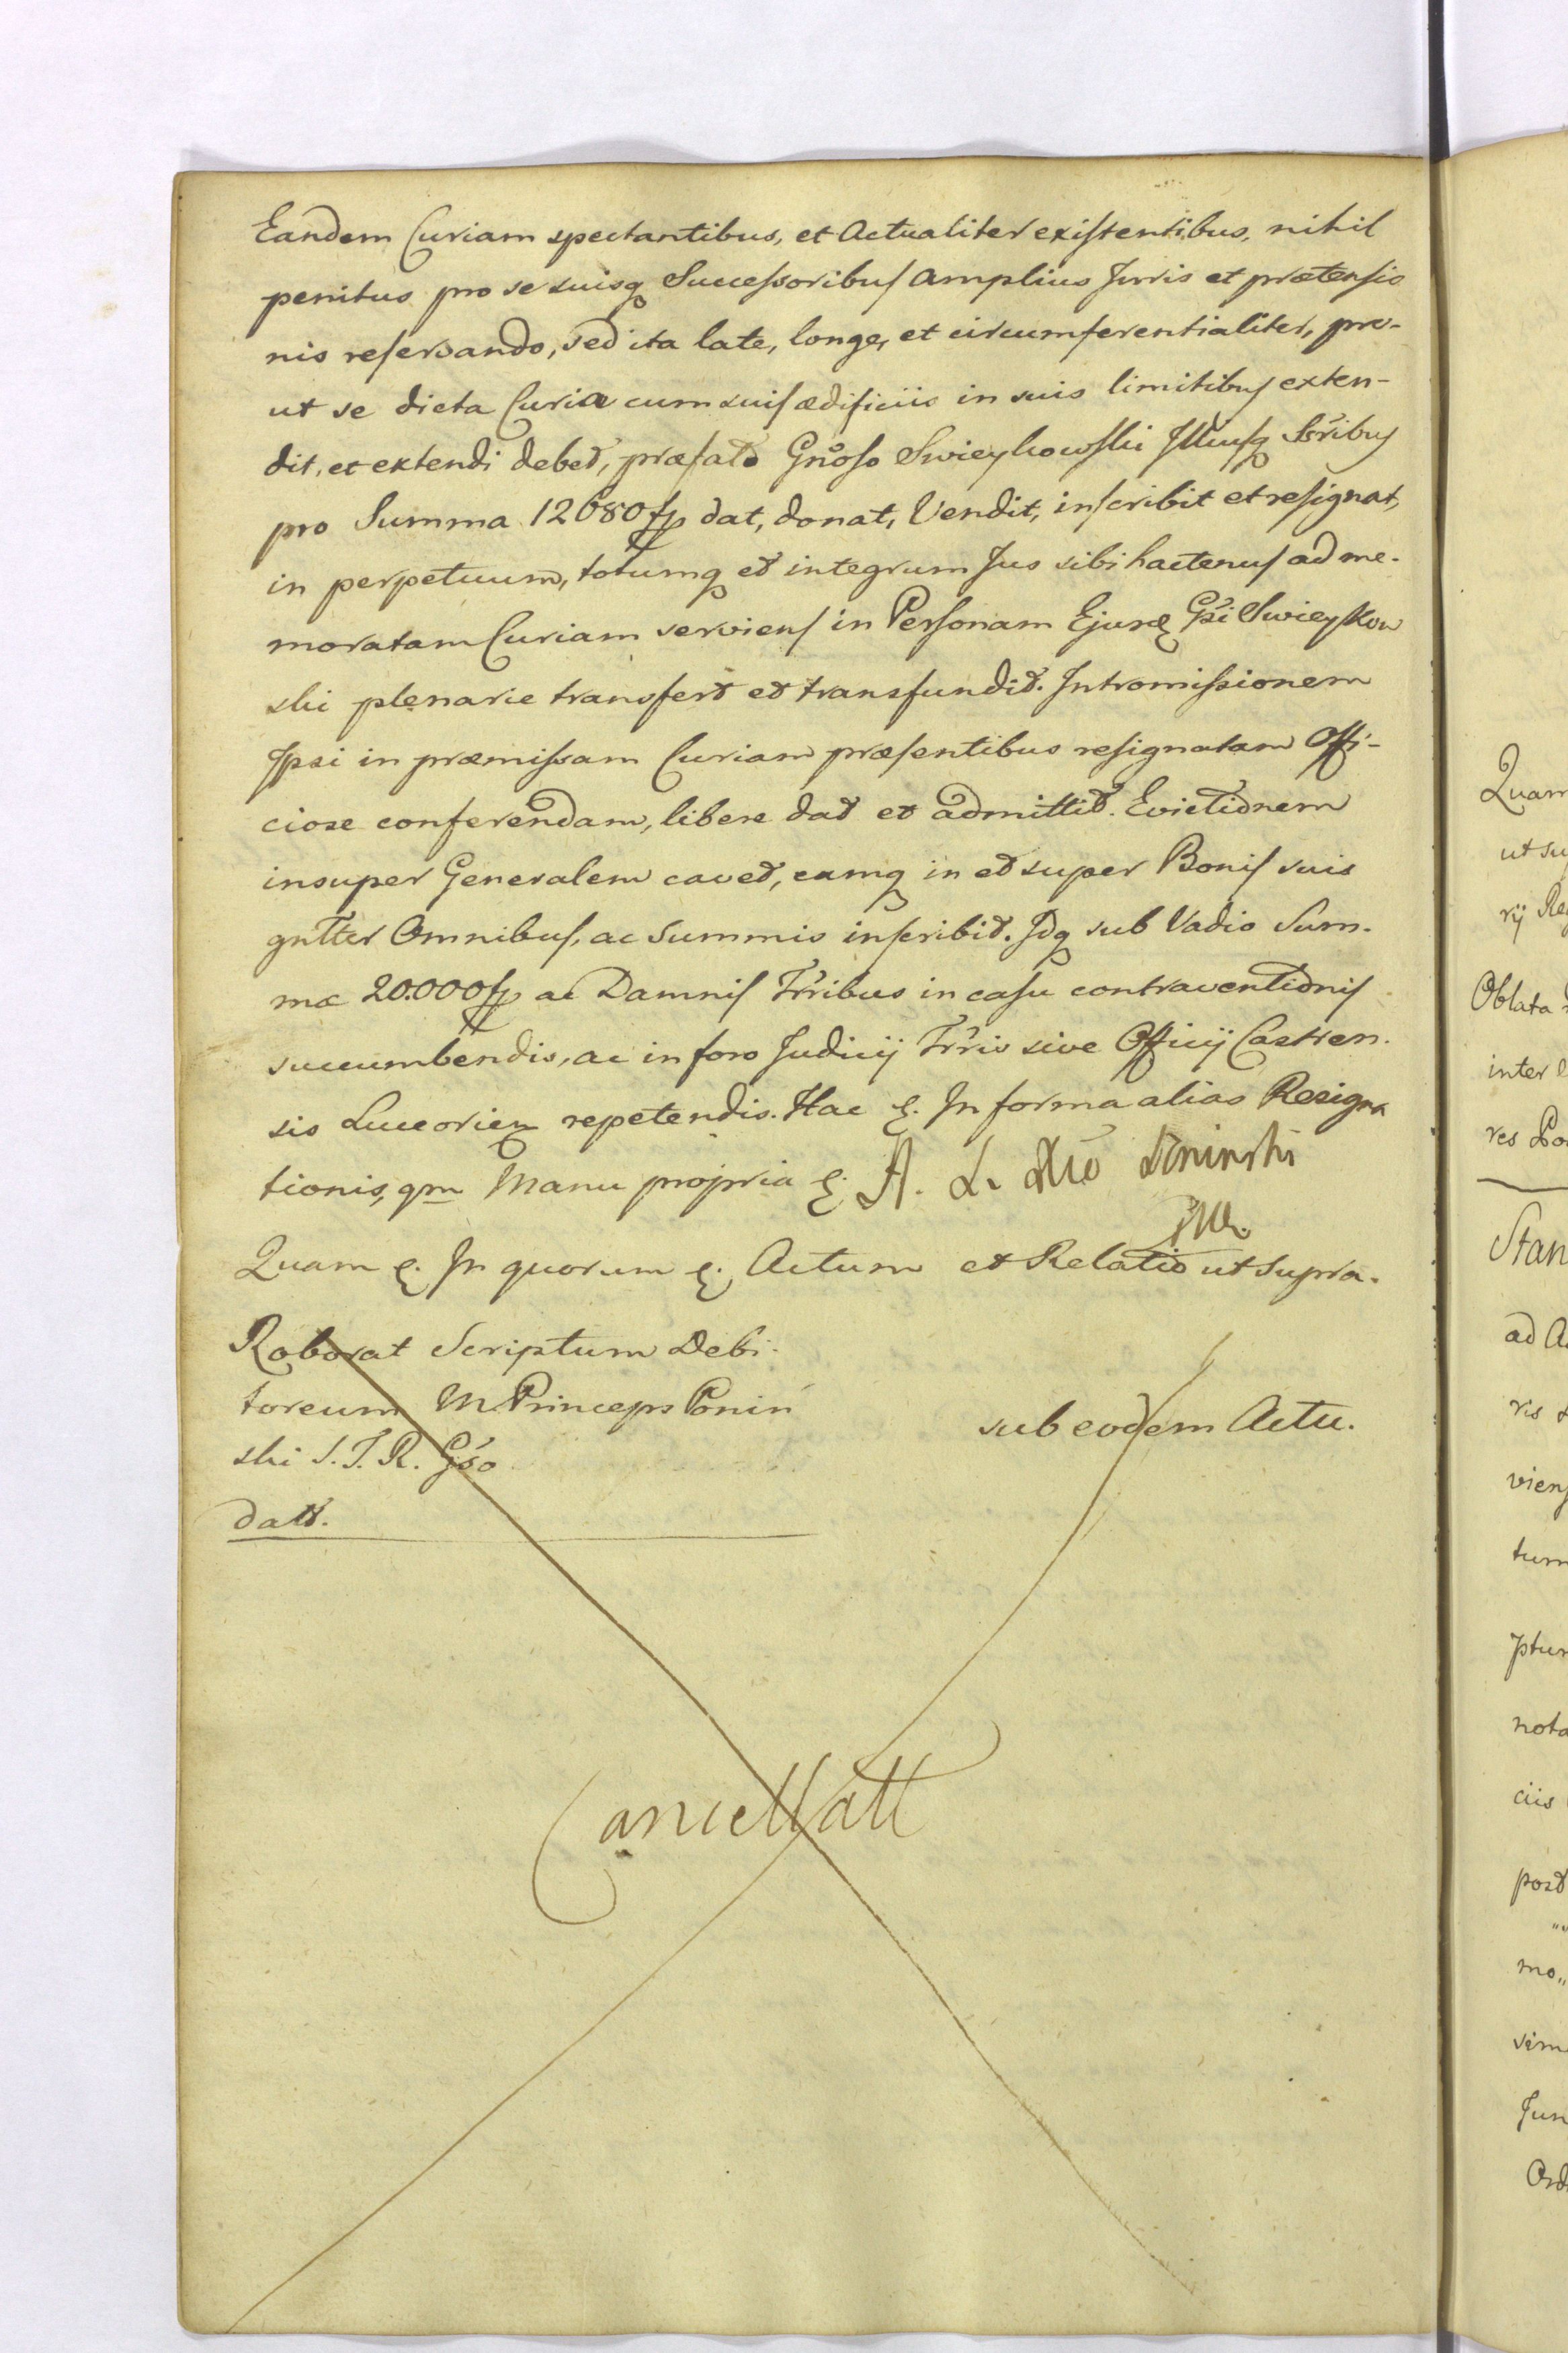 Eandem Curiam spectantibus, et Actualiter existentibus, nihil
penitus pro se suisq Successoribus amplius Juris et prætensio
nis reservando, sed ita late, longe, et circumferentialiter, pro-
ut se dicta Curia cum suis ædificiis in suis limitibus exten-
dit, et extendi debet, præfato Gnoso Swieykowski Illiusq Sśribus
pro Summa 12680 fp dat, donat, Vendit, inscribit et resignat,
in perpetuum, totumq et integrum Jus sibi hactenus ad me-
moratam Curiam serviens in Personam Ejusd Gsi Swieykow
ski plenarie transfert et transfundit. Intromissionem
Ipsi in præmissam Curiam præsentibus resignatam Offi-
ciose conferendam, libere dat et admittit. Evictionem
insuper Generalem cavet, eamq in et super Bonis suis
gntter Omnibus, ac Summis inscribit. Idq sub Vadio Sum-
mæ 20.000 fp ac Damnis Trribus in casu contraventionis
succumbendis, ac in foro Judicij Trris sive Officij Castren-
sis Luceorien repetendis. Hac &. In forma alias Resigna
tionis, qm Manu propria &. A. L. Poninski
mp.
Quam &. In quorum &. Actum et Relatio ut supra.
Roborat Scriptum Debi-
toreum M. Princeps Poniń
ski S. T. R. Gso
datt.
sub eodem Actu.
Cancellatt
Quam
ut su
rij Re
Oblata
inter
res Po
Stan
ad A
ris
viens
tum
ptum
nota
ciis
post
mo,,
sim
Jun
Ord